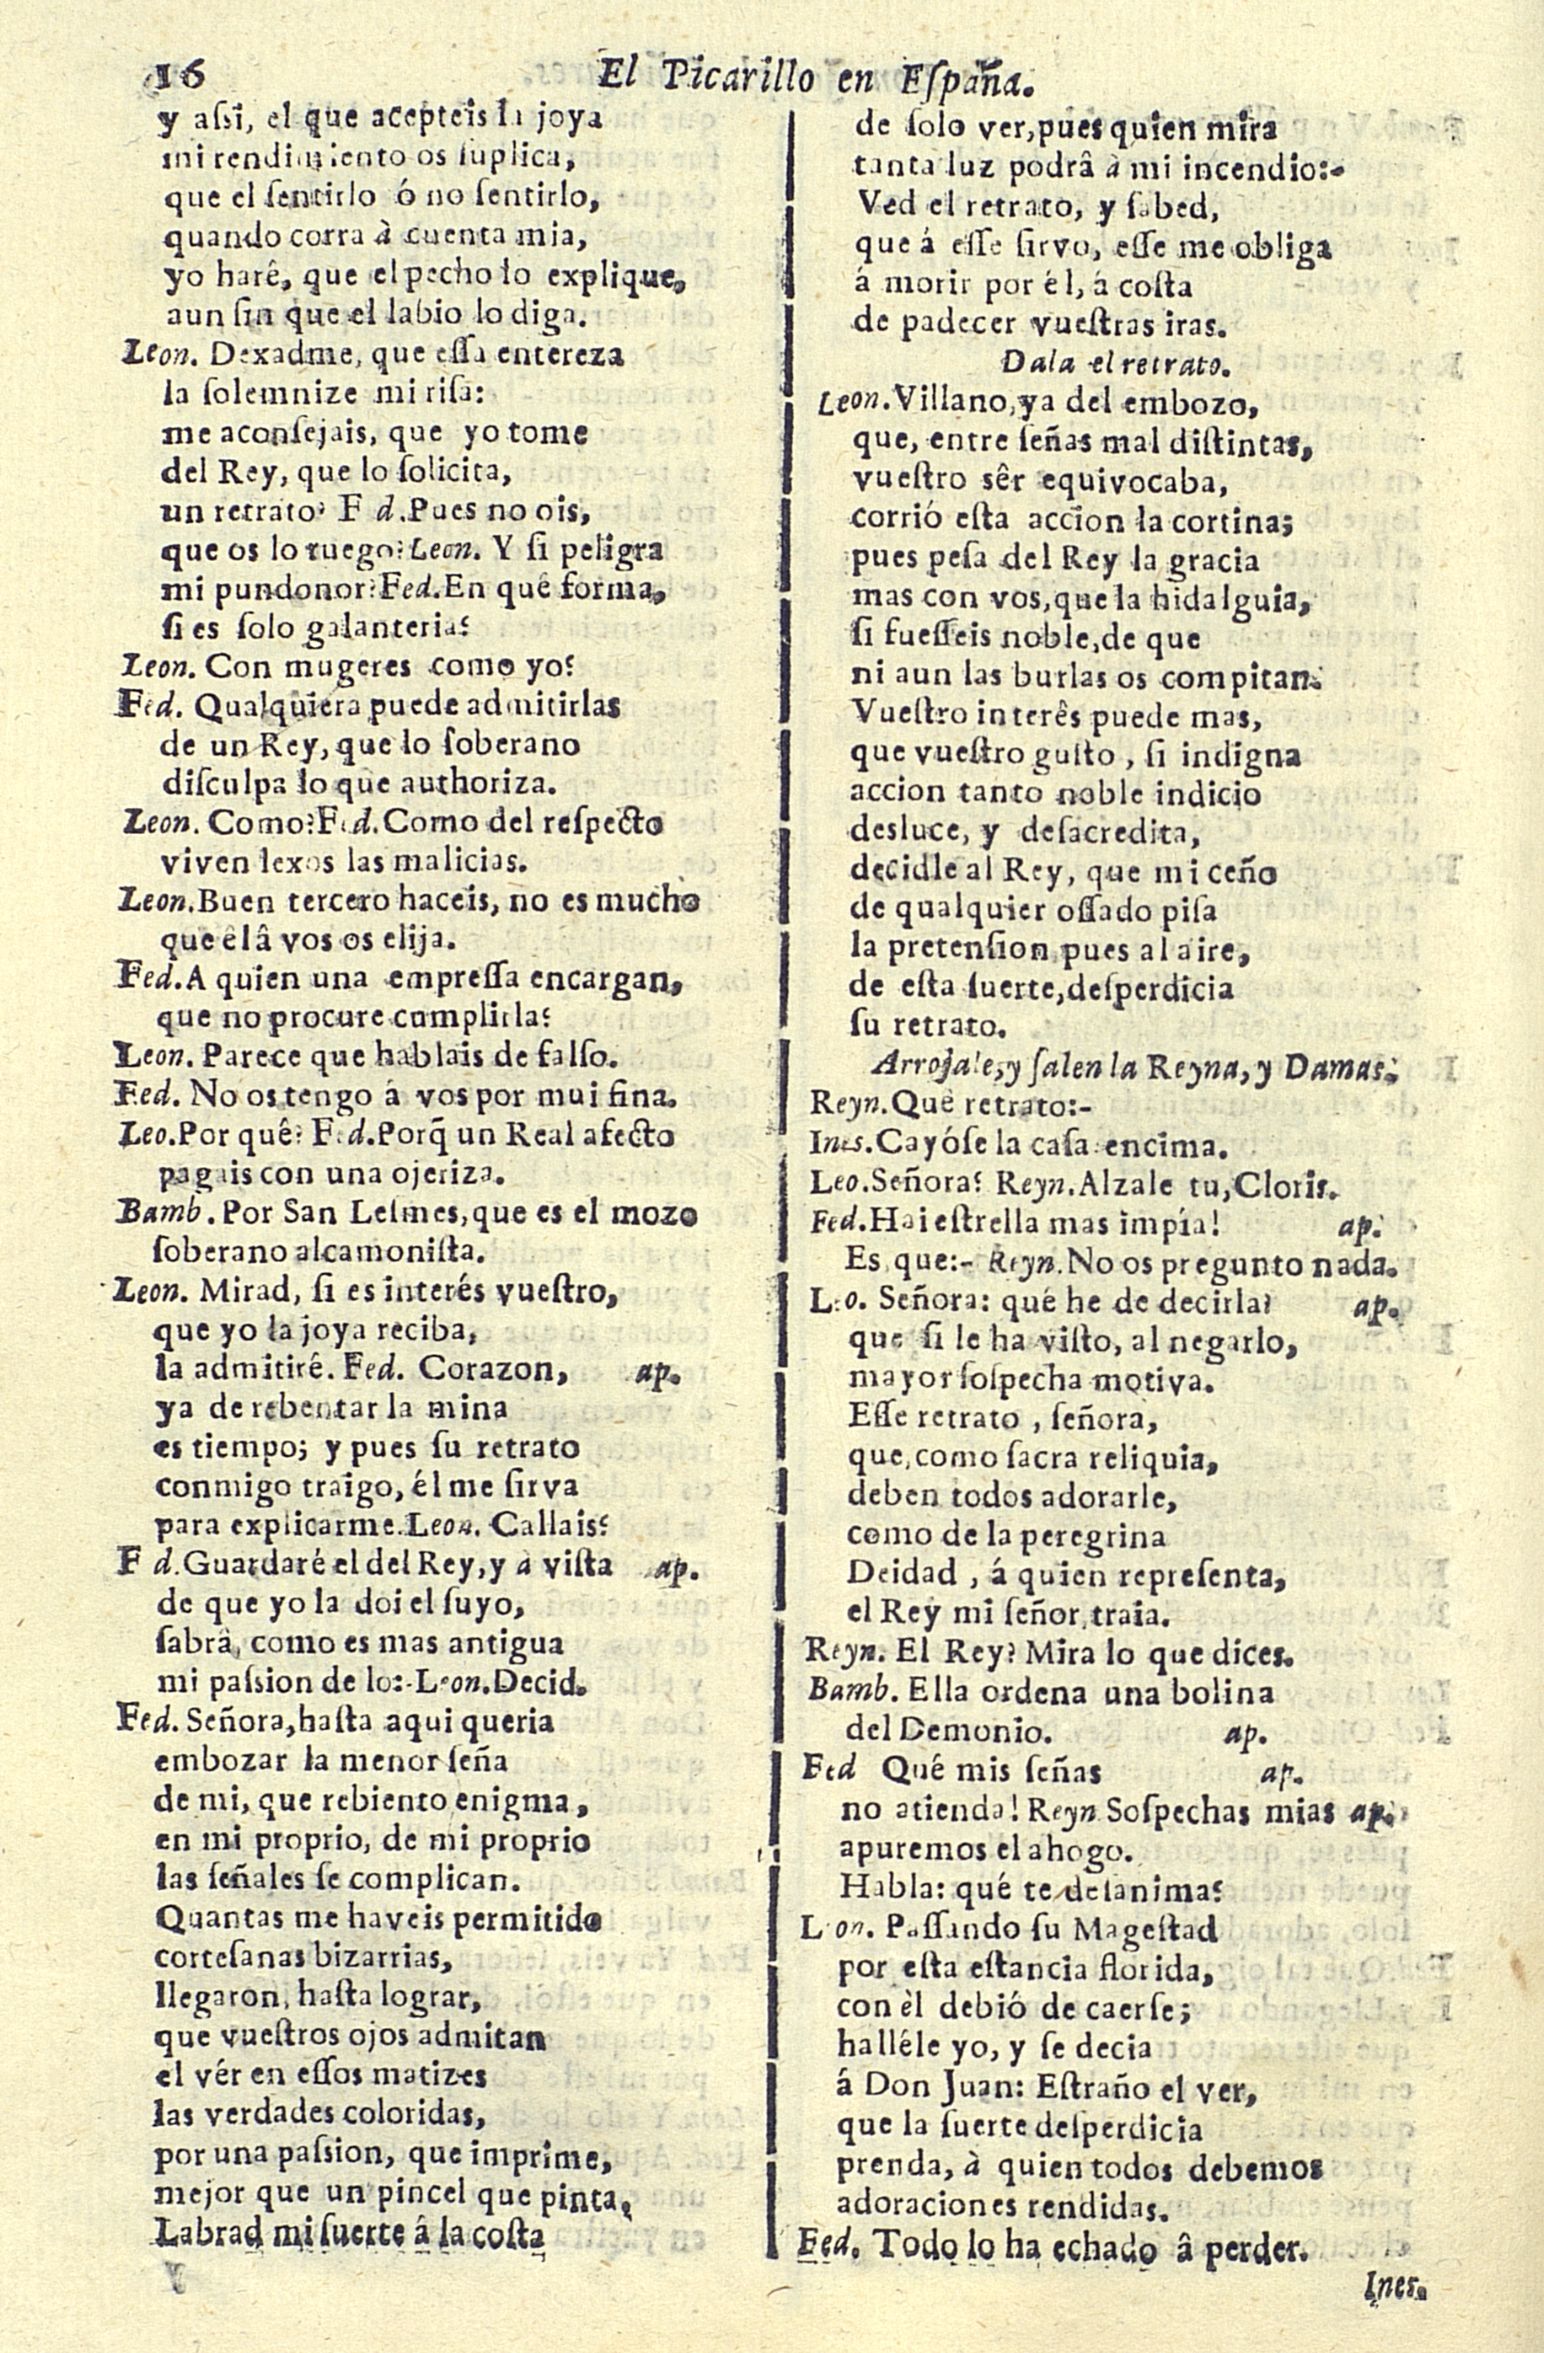 16 El Picarillo en Eſpaña.
y aſsi, el que acepteis la joya
mi rendimiento os ſuplica,
que el ſentirlo ó no ſentirlo,
quando corra à cuenta mia,
yo harê, que el pecho lo explique,
aun ſin que el labio lo diga.
Leon. Dexadme, que eſſa entereza
la ſolemnize mi riſa:
me aconſejais, que yo tome
del Rey, que lo ſolicita,
un retrato? F d. Pues no ois,
que os lo ruego? Leon. Y ſi peligra
mi pundonor? Fed. En quê forma,
ſi es ſolo galanteria?
Leon. Con mugeres como yo?
Fed. Qualquiera puede admitirlas
de un Rey, que lo ſoberano
diſculpa lo que authoriza.
Leon. Como? Fed. Como del reſpecto
viven lexos las malicias.
Leon. Buen tercero haceis, no es mucho
que êl â vos os elija.
Fed. A quien una empreſſa encargan,
que no procure cumplirla?
Leon. Parece que hablais de falſo.
Fed. No os tengo á vos por mui fina.
Leo. Por quê? Fed. Porq̃ un Real afecto
pagais con una ojeriza.
Bamb. Por San Leſmes, que es el mozo
ſoberano alcamoniſta.
Leon. Mirad, ſi es interés vueſtro,
que yo la joya reciba,
la admitiré. Fed. Corazon, ap.
ya de rebentar la mina
es tiempo; y pues ſu retrato
conmigo traigo, él me ſirva
para explicarme. Leon. Callais?
F d. Guardaré el del Rey, y à viſta ap.
de que yo la doi el ſuyo,
ſabrâ, como es mas antigua
mi paſsion de lo:- Leon. Decid.
Fed. Señora, haſta aqui queria
embozar la menor ſeña
de mi, que rebiento enigma,
en mi proprio, de mi proprio
las ſeñales ſe complican.
Quantas me haveis permitido
corteſanas bizarrias,
llegaron, haſta lograr,
que vueſtros ojos admitan
el vér en eſſos matizes
las verdades coloridas,
por una paſsion, que imprime,
mejor que un pincel que pinta.
Labrad mi ſuerte â la coſta
de ſolo ver, pues quien mira
tanta luz podrâ à mi incendio:-
Ved el retrato, y ſabed,
que á eſſe ſirvo, eſſe me obliga
á morir por él, á coſta
de padecer vueſtras iras.
Dala el retrato.
Leon. Villano, ya del embozo,
que, entre ſeñas mal diſtintas,
vueſtro sêr equivocaba,
corrió eſta accion la cortina;
pues peſa del Rey la gracia
mas con vos, que la hidalguia,
ſi fueſſeis noble, de que
ni aun las burlas os compitan.
Vueſtro interês puede mas,
que vueſtro guſto, ſi indigna
accion tanto noble indicio
desluce, y deſacredita,
decidle al Rey, que mi ceño
de qualquier oſſado piſa
la pretenſion, pues al aire,
de eſta ſuerte, deſperdicia
ſu retrato.
Arrojale, y ſalen la Reyna, y Damas.
Reyn. Qué retrato:-
Ines. Cayóſe la caſa encima.
Leo. Señora? Reyn. Alzale tu, Cloris.
Fed. Hai eſtrella mas impía! ap.
Es que:- Reyn. No os pregunto nada.
Leo. Señora: qué he de decirla? ap.
que ſi le ha viſto, al negarlo,
mayor ſoſpecha motiva.
Eſſe retrato, ſeñora,
que, como ſacra reliquia,
deben todos adorarle,
como de la peregrina
Deidad, á quien repreſenta,
el Rey mi ſeñor, traia.
Reyn. El Rey? Mira lo que dices.
Bamb. Ella ordena una bolina
del Demonio. ap.
Fed Qué mis ſeñas ap.
no atienda! Reyn Soſpechas mias ap.
apuremos el ahogo.
Habla: qué te deſanima?
L on. Paſſando ſu Mageſtad
por eſta eſtancia florida,
con èl debió de caerſe;
halléle yo, y ſe decia
á Don Juan: Eſtraño el ver,
que la ſuerte deſperdicia
prenda, à quien todos debemos
adoraciones rendidas.
Fed. Todo lo ha echado â perder.
Ines.